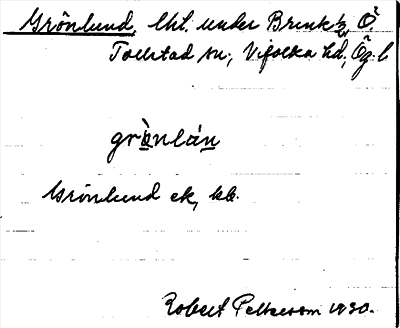 Grönlund, lht. under Brink 2, Ö?
Tollstad sn, Vifolka hd, Ög. l
grònlún
Grönlund ek, kb.
Robert Pettersson 1930.